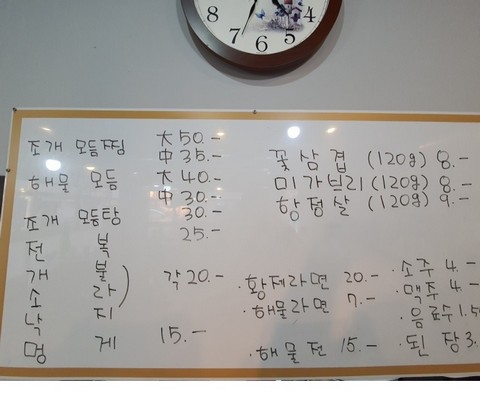 8 7 6 5 4
조개 모듬찜 大 50.-
中 35.-
해물 모듬 大 40.-
中 30.-
조개 모듬탕 30.-
전복 25.-
개불
소라 각 20.-
낙지
멍게 15.-
꽃삼겹 (120g) 8.-
미가브리 (120g) 8.-
항정살 (120g) 9.-
·황제라면 20.-
·해물라면 7.-
·해물전 15.-
·소주 4.-
·맥주 4.-
·음료수 1.5
·된장 3.